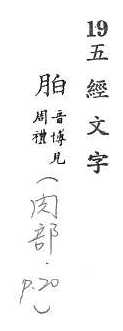 19五經文字
胉音博見周禮
(肉部.p.20)